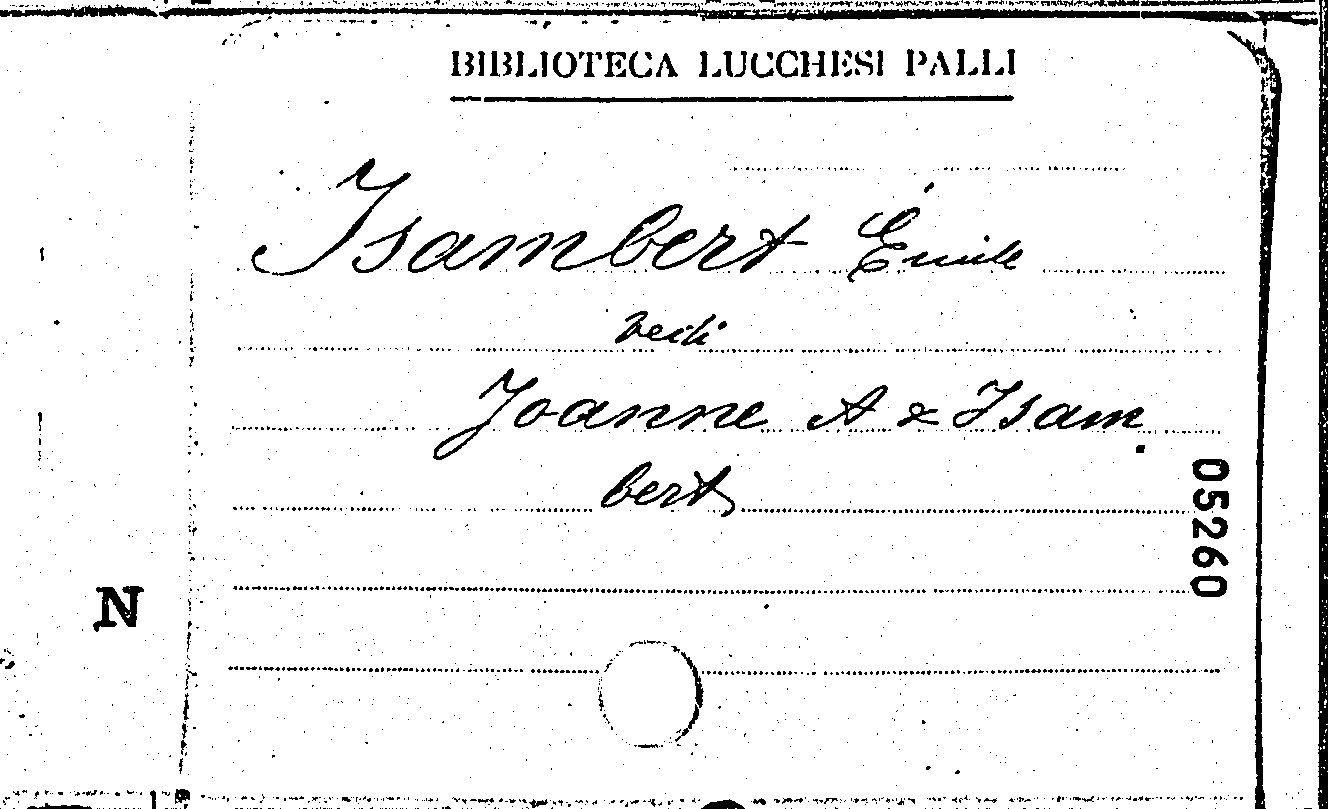 BIBLIOTECA LUCCHESI PALLI
Isambert Émile
vedi
Joanne A & Isam
bert
05260
N